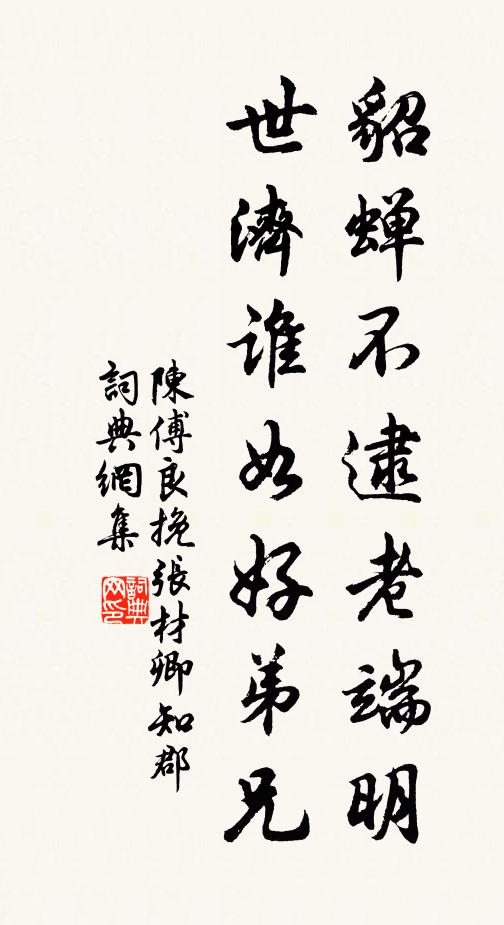 貂蝉不逮老端明
世濟誰如好弟兄
陳傅良挽張材卿知郡
詞典網集
詞典网印